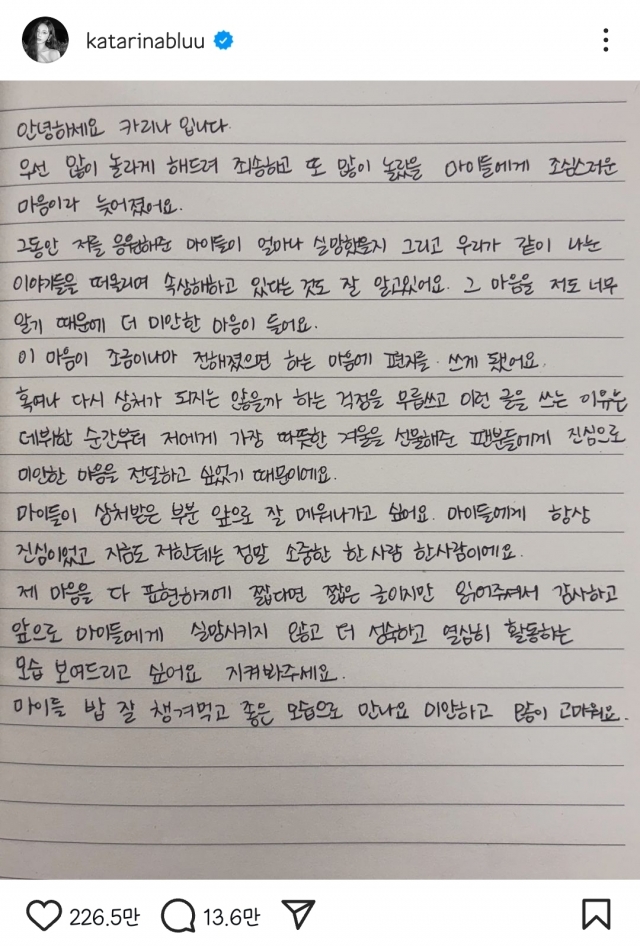 katarinabluu
안녕하세요 카리나 입니다.
우선 많이 놀라게 해드려 죄송하고 또 많이 놀랐을 마이들에게 조심스러운
마음이라 늦어졌어요.
그동안 저를 응원해준 마이들이 얼마나 실망했을지 그리고 우리가 같이 나눈
이야기들을 떠올리며 속상해하고 있다는 것도 잘 알고있어요. 그 마음을 저도 너무
알기 때문에 더 미안한 마음이 들어요.
이 마음이 조금이나마 전해졌으면 하는 마음에 편지를 쓰게 됐어요.
혹여나 다시 상처가 되지는 않을까 하는 걱정을 무릅쓰고 이런 글을 쓰는 이유는
데뷔한 순간부터 저에게 가장 따뜻한 겨울을 선물해준 팬분들에게 진심으로
미안한 마음을 전달하고 싶었기 때문이에요.
마이들이 상처받은 부분 앞으로 잘 메워나가고 싶어요. 마이들에게 항상
진심이었고 지금도 저한테는 정말 소중한 한사람 한사람이에요.
제 마음을 다 표현하기에 짧다면 짧은 글이지만 읽어주셔서 감사하고
앞으로 마이들에게 실망시키지 않고 더 성숙하고 열심히 활동하는
모습 보여드리고 싶어요 지켜봐주세요.
마이들 밥 잘 챙겨먹고 좋은 모습으로 만나요 미안하고 많이 고마워요.
226.5만 13.6만